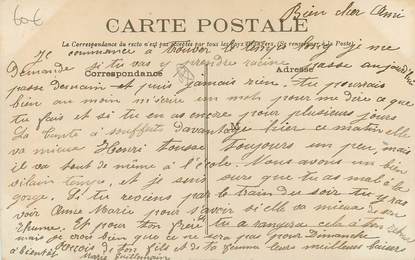 60€
Bien cher Ami
CARTE POSTALE
La Correspondance du recto n'est pas acceptée par tous les pays Étrangers. (Se renseigner à la Poste)
Je commence à trouver le temps long je me
demande si tu vas y prendre racine. passe aujourd'hui
Correspondance
Adresse
passe demain et puis jamais rien. tu pourrais
bien au moins m'écrire un mot pour me dire ce que
tu fais et si tu en as encore pour plusieurs jours
La tante a souffert davantage hier ce matin elle
va mieux Henri tousse toujours un peu, mais
il va tout de même à l'école. Nous avons un bien
vilain temps, et je suis sûre que tu as mal à la
gorge. Si tu reviens par le train du soir tu iras
voir Anne Marie pour savoir si elle va mieux de son
rhume. Et pour ton frère tu arrangeras cela à ton
mais je crois bien que ce ne sera pas pour Dimanche.
à bientôt Reçois de ton fils et de ta femme leurs meilleurs baisers
Marie